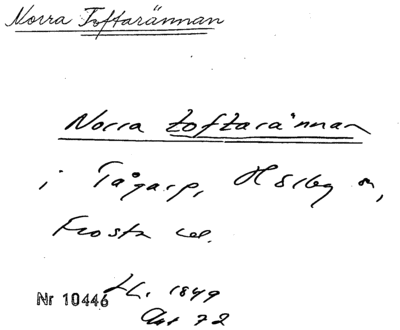 Norra Toftarännan
Norra toftarännan
i Tågarp, Hörby sn,
Frosta hd.
Nr 10446 LH. 1849
Akt 72